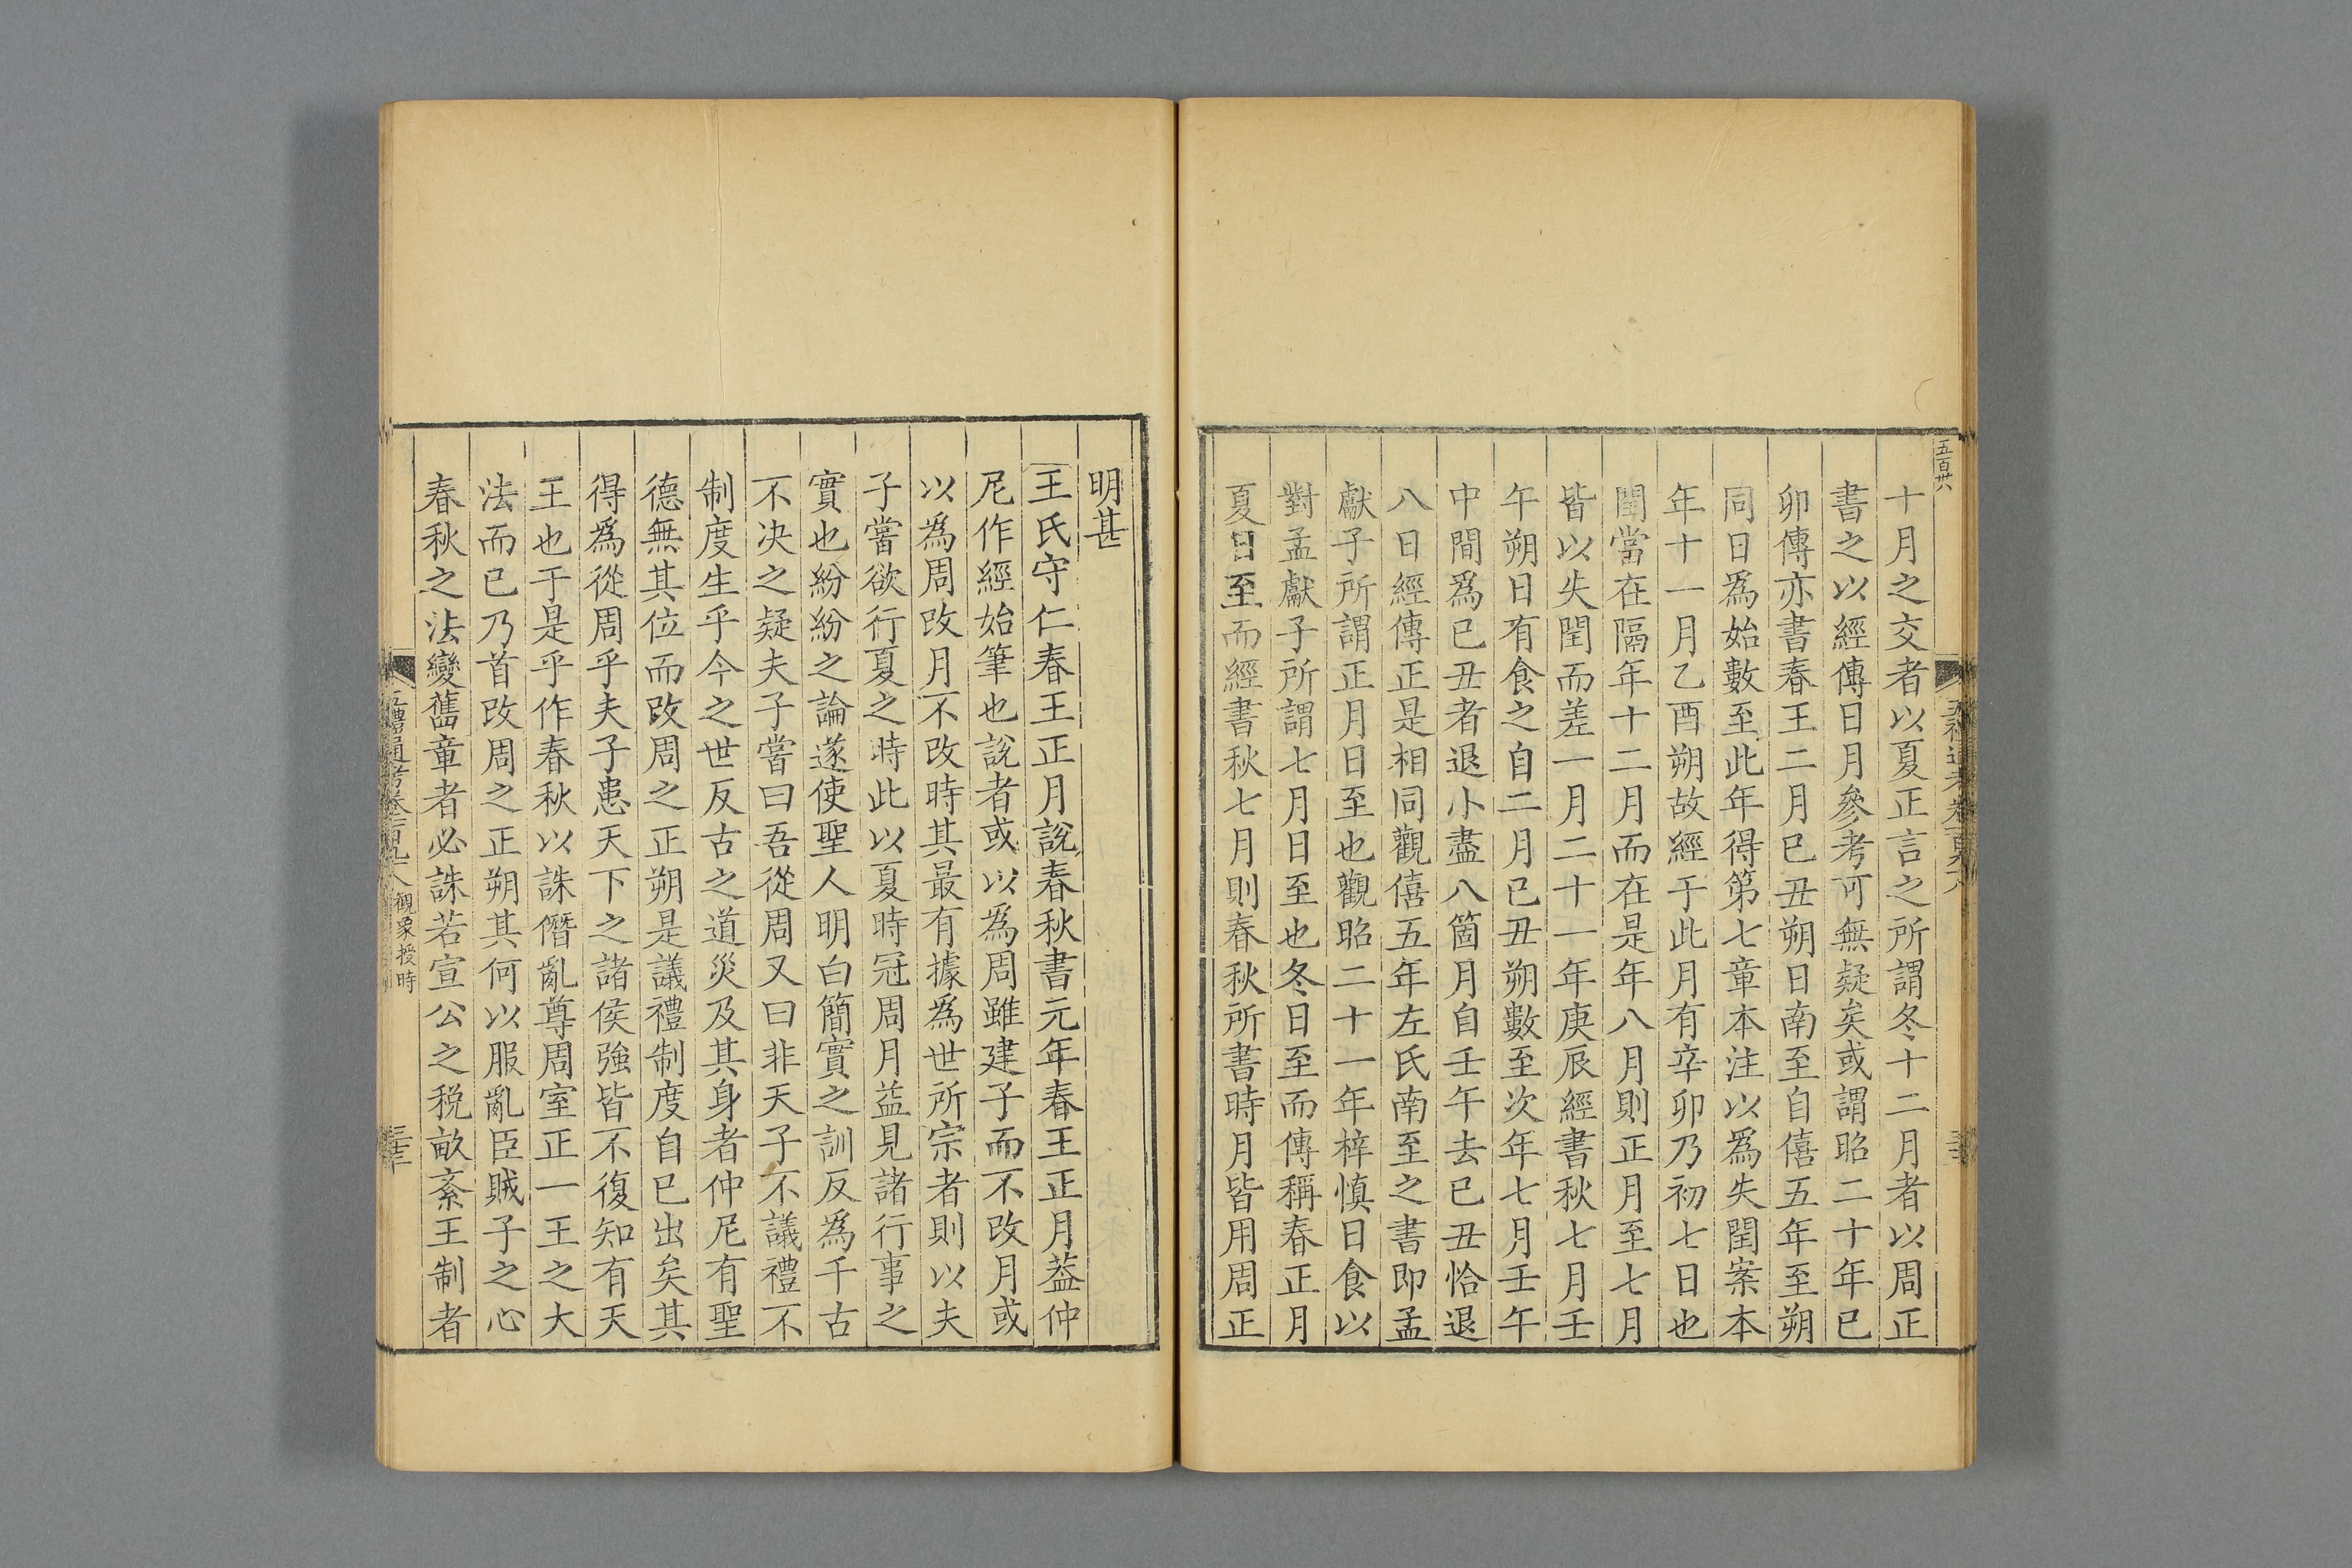 五百廿六
十月之交者以夏正言之所謂冬十二月者以周正
書之以經傳日月參考可無疑矣或謂昭二十年已
卯傳亦書春王二月已丑朔日南至自僖五年至朔
同日爲始數至此年得第七章本注以爲失閏案本
年十一月乙酉朔故經于此月有辛卯乃初七日也
閏當在隔年十二月而在是年八月則正月至七月
皆以失閏而差一月二十一年庚辰經書秋七月壬
午朔日有食之自二月已丑朔數至次年七月壬午
中間爲已丑者退小盡八箇月自壬午去已丑恰退
八日經傳正是相同觀僖五年左氏南至之書即孟
獻子所謂正月日至也觀昭二十一年梓慎日食以
對孟獻子所謂七月日至也冬日至而傳稱春正月
夏日至而經書秋七月則春秋所書時月皆用周正
明甚
王氏守仁春王正月說春秋書元年春王正月葢仲
尼作經始筆也說者或以爲周雖建子而不改月或
以爲周改月不改時其最有據爲世所宗者則以夫
子嘗欲行夏之時此以夏時冠周月葢見諸行事之
實也紛紛之論遂使聖人明白簡實之訓反爲千古
不决之疑夫子嘗曰吾從周又曰非天子不議禮不
制度生乎今之世反古之道災及其身者仲尼有聖
德無其位而改周之正朔是議禮制度自已出矣其
得爲從周乎夫子患天下之諸侯強皆不復知有天
王也于是乎作春秋以誅僭亂尊周室正一王之大
法而已乃首改周之正朔其何以服亂臣賊子之心
春秋之法變舊章者必誅若宣公之税畝紊王制者
五禮通考卷一百九十八 觀象授時